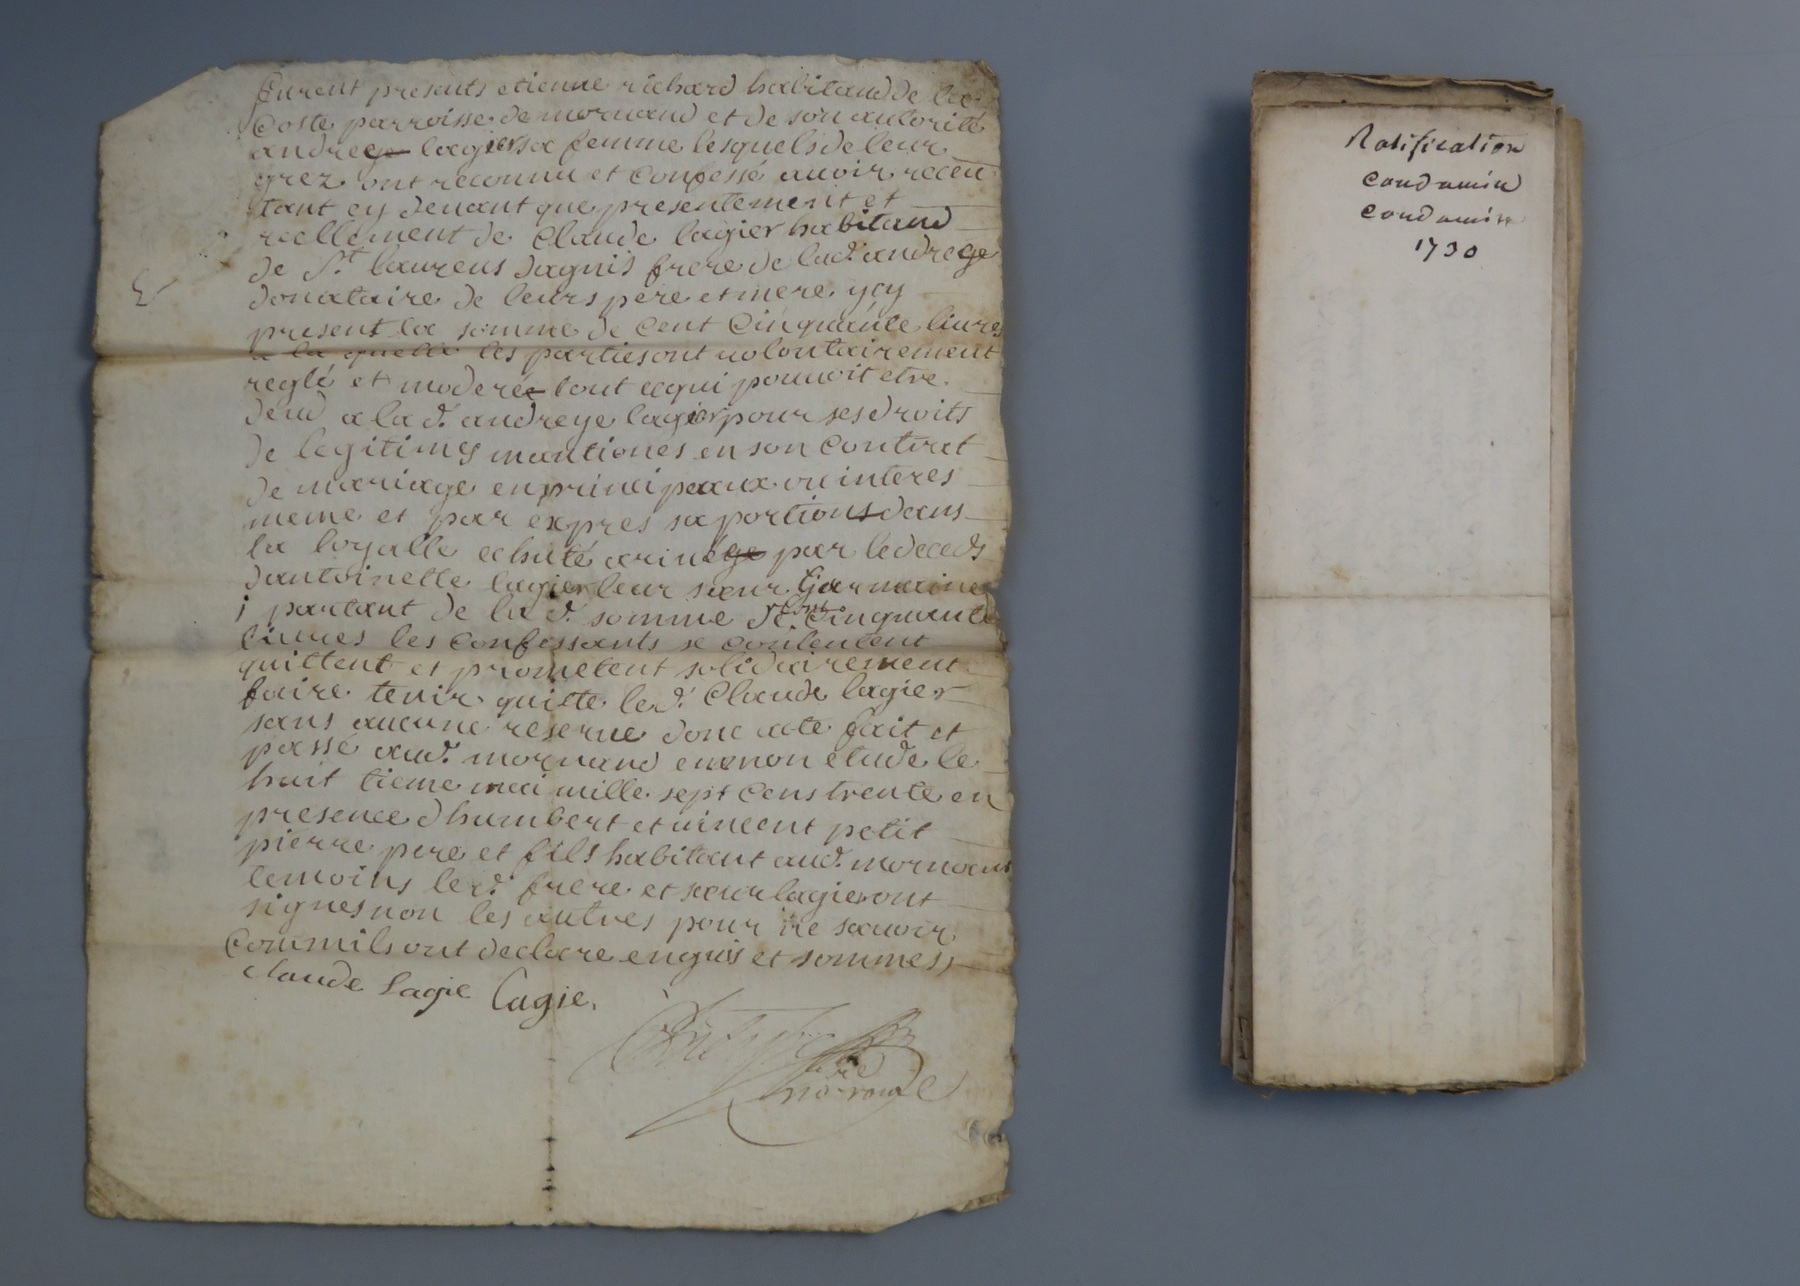 furent presents etienne richard habitand de la
Coste parroisse de mornand et de son autorité
andreye lagier sa femme lesquels de leur
grez ont reconnu et confessé auoir receu
tant cy deuant que presentement et
reellement de Claude lagier habitand
de St laurens dagnis frere de lad. andreye
donataire de leurs pere et mere ycy
present la somme de Cent Cinquante liures
a la quelle les parties ont uolontairement
reglé et moderé tout ce qui pouuoit etre
deud a la d. andreye lagier pour ses droits
de legitimes mantionés en son contrat
de mariage en principaux ou interes
meme et par expres sa portion dans
la loyalle echute ariuée par le deceds
dantoinette lagier leur sœur Germaine
partant de la d. somme de Cent Cinquante
liures les Confessants se contentent
quittent et prometent solidairement
faire tenir quitte led. Claude lagier
sans aucune reserue donc acte fait et
passé aud. mornand en mon etude le
huit tieme mai mille sept cens trente en
presence dhumbert et uincent petit
pierre pere et fils habitant aud. mornand
temoins led. frere et sœur lagier ont
signes non les autres pour ne sauoir
Comm ils ont declare enquis et sommes
Claude Lagie Lagie.
nore royal
Ratification
condamin
condamin
1730